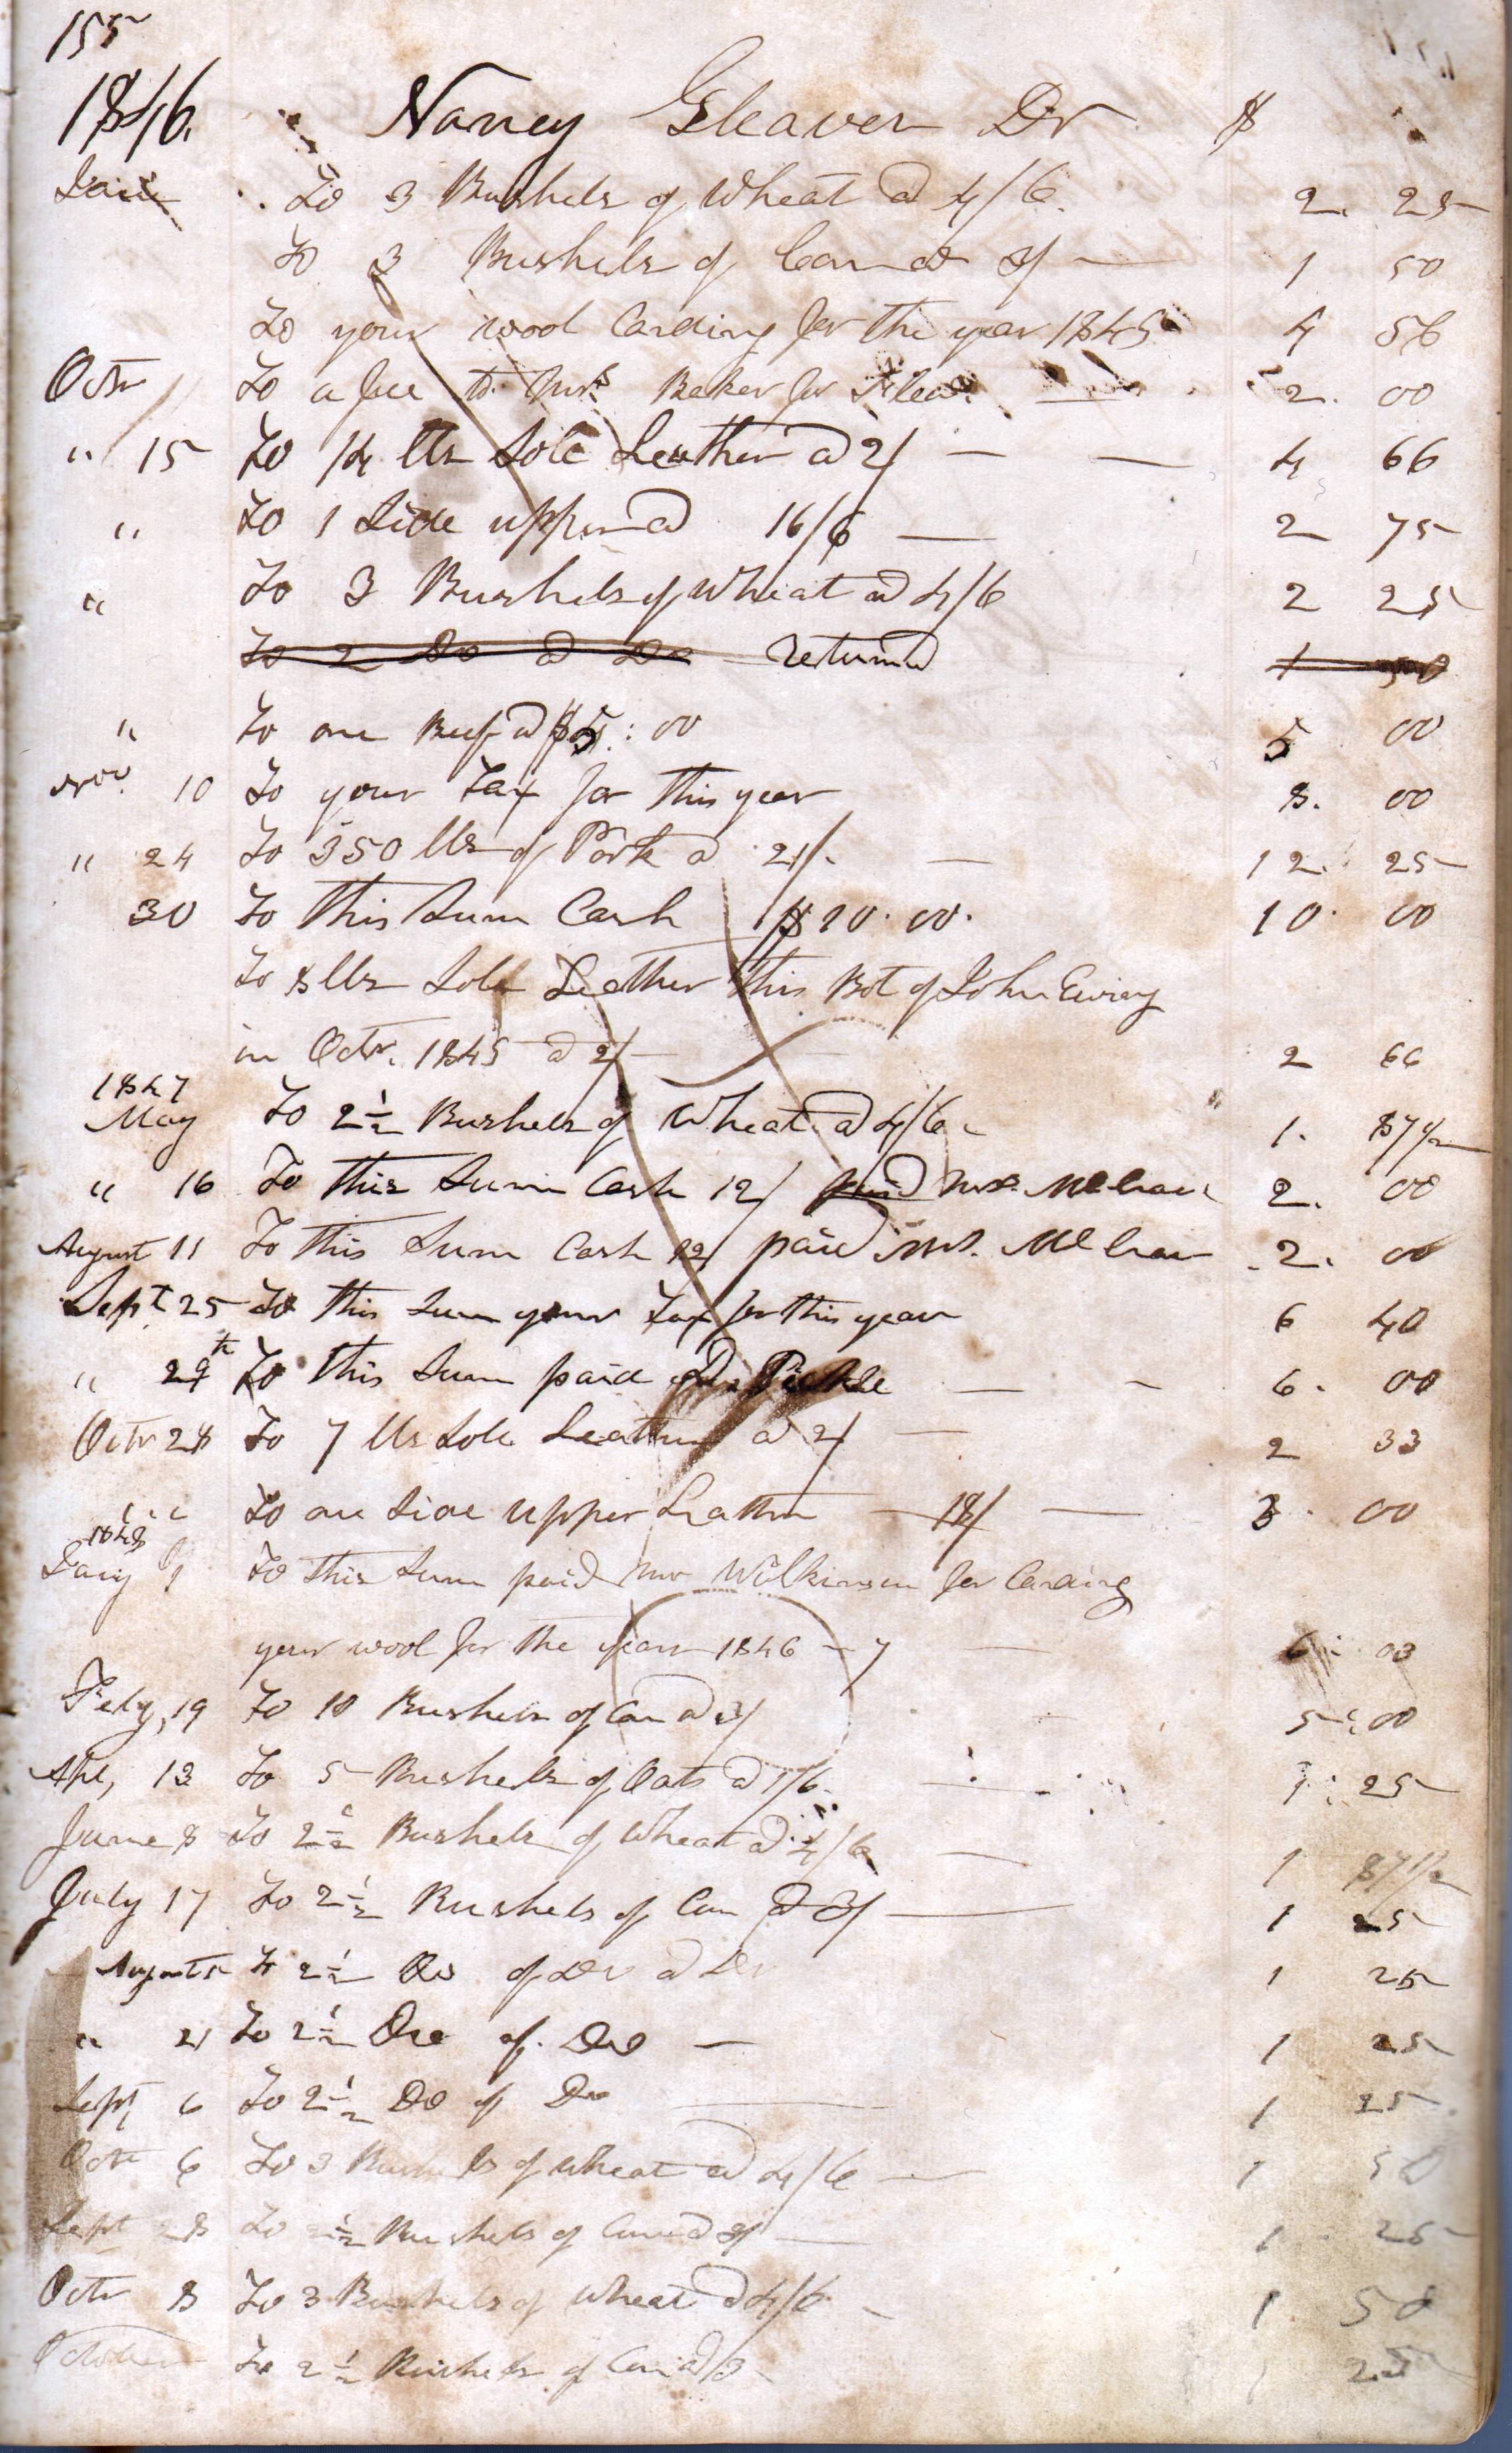 155
1846. Nancy Gleaver Dr $
To 3 Bushels of Wheat @ 4/6. 2. 25
To 3 Bushels of Corn @ 3/ — 1 50
To your wool Carding for the year 1845 4 56
Octr To a fee to Mrs Baker for 2. 00
" 15 To 14 lbs Sole Leather @ 2/ — — 4 66
" To 1 Side upper @ 16/6 — 2 75
" To 3 Bushels of Wheat @ 4/6 2 25
To 2 Do @ Do returnd 1 50
" To one Beef @ $5: 00 5 00
Nov. 10 To your Tax for this year 8. 00
" 24 To 350 lbs of Pork @ 21/. — 12. 25
30 To this Sum Cash $10. 00. 10. 00
To 8 lbs Sole Leather this Bot of John
in Octr. 1845 @ 2/ — 2 66
1847
May To 2½ Bushels of Wheat @ 4/6 1. 87½
" 16 To this Sum Cash 12/ paid Mrs. 2. 00
August 11 To this Sum Cash 12/ paid Mrs. 2. 00
Sept 25 To this Sum your Tax for this year 6 40
" 29th To this Sum paid — - 6. 00
Octr 28 To 7 lbs Sole Leather @ 2/ — 2 33
" " To one Side upper Leather — 18/ — 3. 00
1848
Jany 1 To this Sum paid Mr Wilkinson for Carding
your wool for the years 1846 - 7 6: 03
Feby, 19 To 10 Bushels of Corn @ 3/ 5: 00
Apl, 13 To 5 Bushels of Oats @ 1/6. 1: 25
June 8 To 2½ Bushels of Wheat @ 4/6 — 1 87½
July 17 To 2½ Bushels of Corn @ 3/ — 1 25
August 5 To 2½ Do of Do @ Do 1 25
" 21 To 2½ Do of. Do — 1 25
Sept, 6 To 2½ Do of Do 1 25
Octr 6 To 3 Bushels of wheat @ 4/6 — 1 50
Sept 28 To 2½ Bushels of Corn @ 3/ — 1 25
Octr 8 To 3 Bushels of Wheat @ 4/6 - 1 50
October To 2½ Bushels of Corn @ 3 1 25